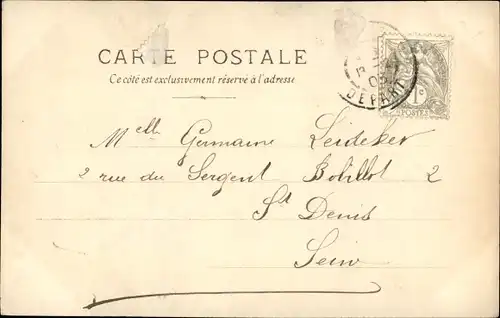 CARTE POSTALE
Ce côté est exclusivement réservé à l'adresse
DEPART
05
1c
POSTES
Melle Germaine Leideker
2 rue du Sergent Bobillot 2
St Denis
Seine